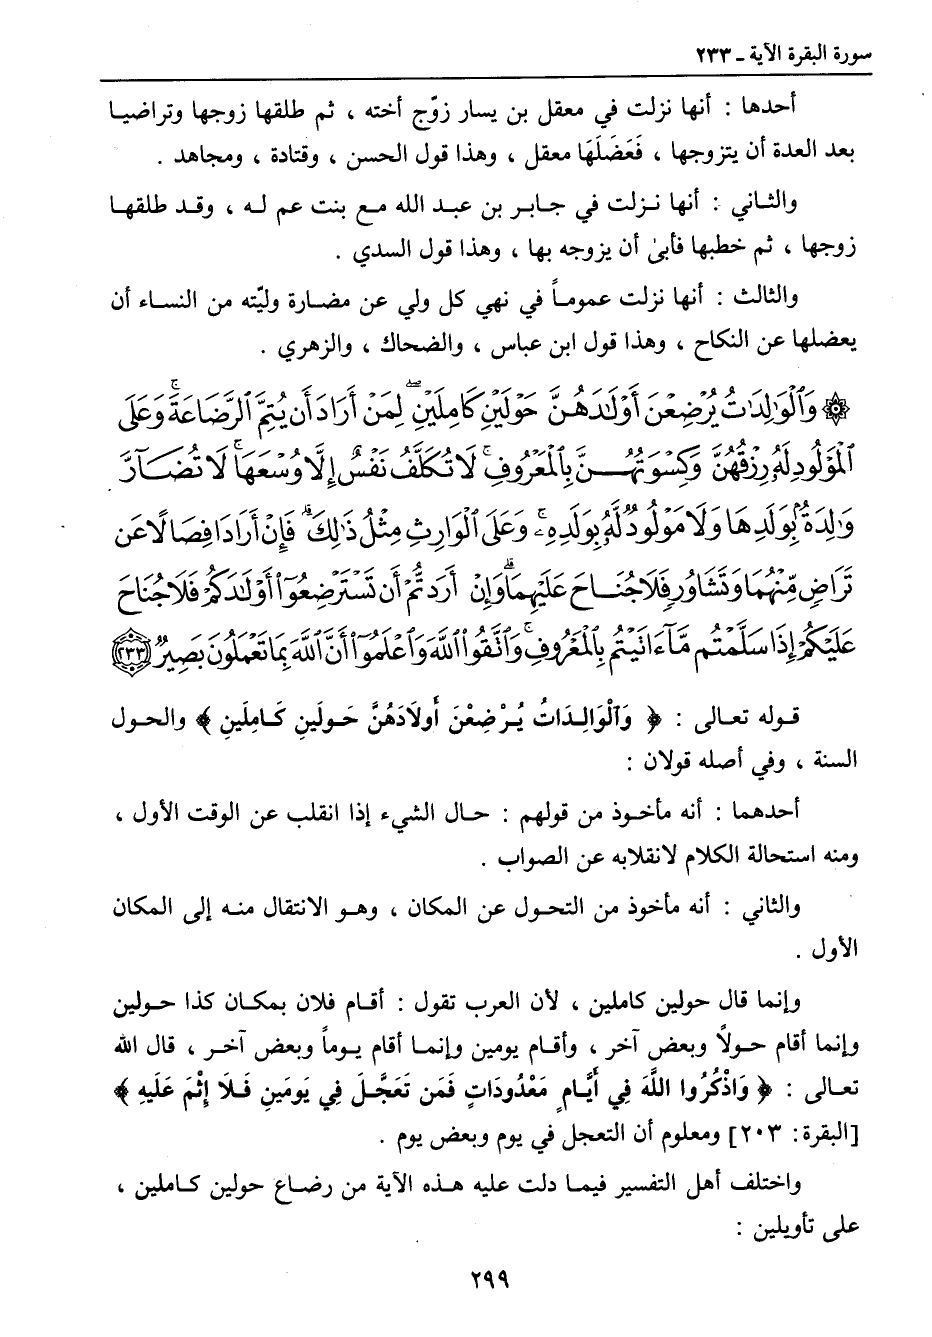 سورة البقرة الآية ـ ٢٣٣
أحدها : أنها نزلت في معقل بن يسار زوّج أخته ، ثم طلقها زوجها وتراضيا
بعد العدة أن يتزوجها ، فَعَضَلَهَا معقل ، وهذا قول الحسن ، وقتادة ، ومجاهد .
والثاني : أنها نزلت في جابر بن عبد الله مع بنت عم له ، وقد طلقها
زوجها ، ثم خطبها فأبىٰ أن يزوجه بها ، وهذا قول السدي .
والثالث : أنها نزلت عموماً في نهي كل ولي عن مضارة وليّته من النساء أن
يعضلها عن النكاح ، وهذا قول ابن عباس ، والضحاك ، والزهري .
۞ وَٱلْوَٰلِدَٰتُ يُرْضِعْنَ أَوْلَٰدَهُنَّ حَوْلَيْنِ كَامِلَيْنِ ۖ لِمَنْ أَرَادَ أَن يُتِمَّ ٱلرَّضَاعَةَ ۚ وَعَلَى
ٱلْمَوْلُودِ لَهُۥ رِزْقُهُنَّ وَكِسْوَتُهُنَّ بِٱلْمَعْرُوفِ ۚ لَا تُكَلَّفُ نَفْسٌ إِلَّا وُسْعَهَا ۚ لَا تُضَآرَّ
وَٰلِدَةٌۢ بِوَلَدِهَا وَلَا مَوْلُودٌ لَّهُۥ بِوَلَدِهِۦ ۚ وَعَلَى ٱلْوَارِثِ مِثْلُ ذَٰلِكَ ۗ فَإِنْ أَرَادَا فِصَالًا عَن
تَرَاضٍ مِّنْهُمَا وَتَشَاوُرٍ فَلَا جُنَاحَ عَلَيْهِمَا ۗ وَإِنْ أَرَدتُّمْ أَن تَسْتَرْضِعُوٓا۟ أَوْلَٰدَكُمْ فَلَا جُنَاحَ
عَلَيْكُمْ إِذَا سَلَّمْتُم مَّآ ءَاتَيْتُم بِٱلْمَعْرُوفِ ۗ وَٱتَّقُوا۟ ٱللَّهَ وَٱعْلَمُوٓا۟ أَنَّ ٱللَّهَ بِمَا تَعْمَلُونَ بَصِيرٌ ﴿٢٣٣﴾
قوله تعالى : ﴿ وَٱلْوَالِدَاتُ يُرْضِعْنَ أَولَادَهُنَّ حَولَينِ كَامِلَينِ ﴾ والحول
السنة ، وفي أصله قولان :
أحدهما : أنه مأخوذ من قولهم : حال الشيء إذا انقلب عن الوقت الأول ،
ومنه استحالة الكلام لانقلابه عن الصواب .
والثاني : أنه مأخوذ من التحول عن المكان ، وهو الانتقال منه إلى المكان
الأول .
وإنما قال حولين كاملين ، لأن العرب تقول : أقام فلان بمكان كذا حولين
وإنما أقام حولاً وبعض آخر ، وأقام يومين وإنما أقام يوماً وبعض آخر ، قال الله
تعالى : ﴿ وَاذْكُرُوا اللَّهَ فِي أَيَّامٍ مَعْدُودَاتٍ فَمَن تَعَجَّلَ فِي يَومَينِ فَلَا إِثْمَ عَلَيهِ ﴾
[البقرة: ٢٠٣] ومعلوم أن التعجل في يوم وبعض يوم .
واختلف أهل التفسير فيما دلت عليه هذه الآية من رضاع حولين كاملين ،
على تأويلين :
٢٩٩